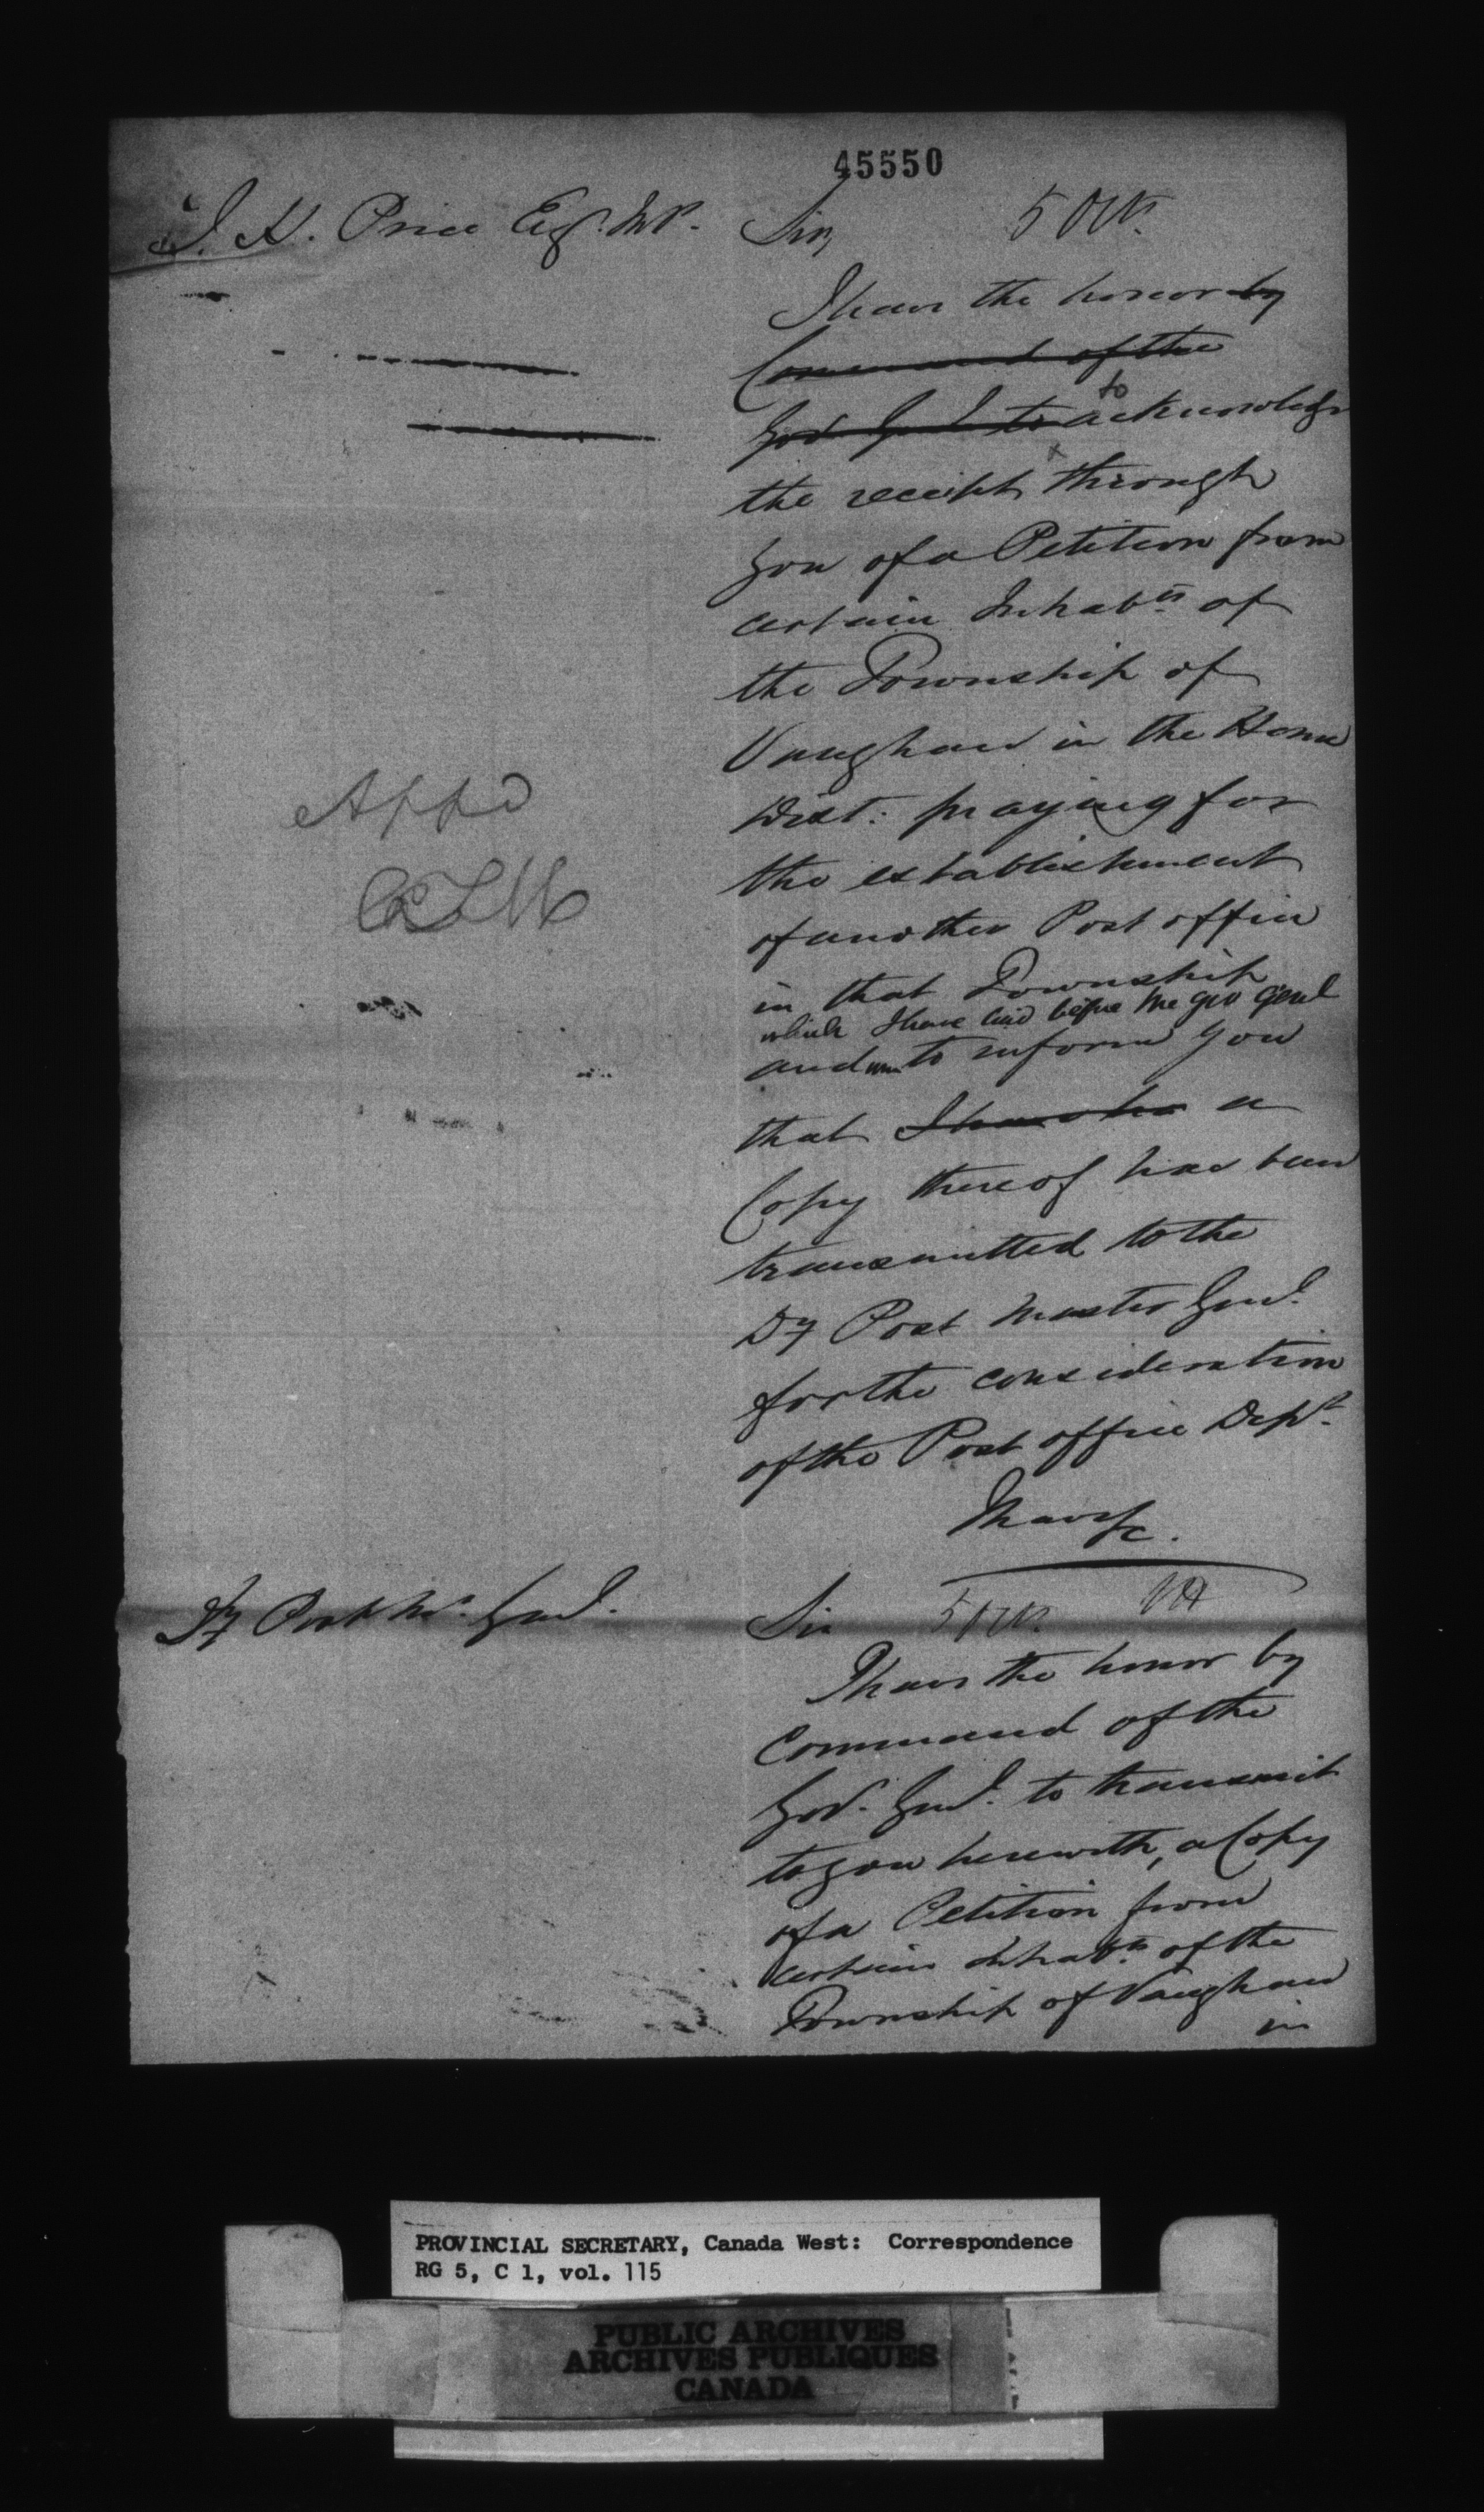 45550
J. H. Price Esqr. M.P.
Sir, 5 Oct.
I have the honor by
Command of the
Gov Genl to to acknowledge
the receipt through
you of a Petition from
certain Inhabts of
the Township of
Vaughan in the Home
Dist: praying for
the establishment
of another Post office
in that Township
which I have laid before the Gov Genl
and to inform you
that I have the a
Copy thereof has been
transmitted to the
Dy Post Master Genl.
for the consideration
of the Post office Dept.
I have &c.
Appd
Dy Post Mr. Genl.
Sir 5 Oct.
I have the honor by
Command of the
Govr. Genl. to transmit
to you herewith, a Copy
of a Petition from
certain Inhabts. of the
Township of Vaughan
in
PROVINCIAL SECRETARY, Canada West: Correspondence
RG 5, C 1, vol. 115
PUBLIC ARCHIVES
ARCHIVES PUBLIQUES
CANADA